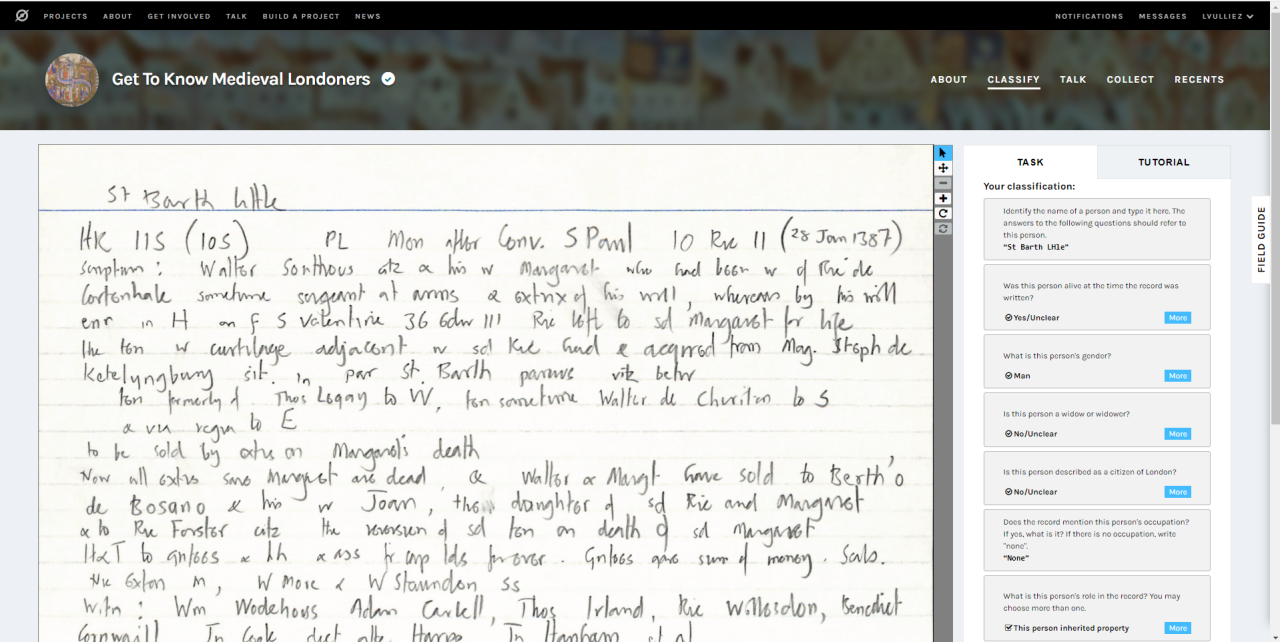 PROJECTS ABOUT GET INVOLVED TALK BUILD A PROJECT NEWS NOTIFICATIONS MESSAGES LVULLIEZ
Get To Know Medieval Londoners ABOUT CLASSIFY TALK COLLECT RECENTS
St Barth little
HR 115 (105) PL Mon after Conv. S Paul 10 Ric II (28 Jan 1387)
Walter Sonthous citz & his w Margaret who had been w of Ric de
Cortenhale sometime sergeant at arms & extrix of his will, whereas by his will
enr in H on f S Valentine 36 Edw III Ric left to sd Margaret for life
the ten w curtilage adjacent w sd Ric had & acqired from Mag. Steph de
Ketelyngbury sit. in par St. Barth parvus viz betw
ten formerly of Thos Legay to W, ten sometime Walter de Chiriton to S
& via regia to E
to be sold by extrs on Margaret's death
Now all extrs save Margaret are dead & Walter & Margt have sold to Berth'o
de Bosano & his w Joan, the daughter of sd Ric and Margaret
& to Ric Forster citz the reversion of sd ten on death of sd Margaret
H&T to gntees & hh & ass fr cap lds for ever. Gntees gave sum of money. Seals.
Nic Exton M, W More & W Staundon ss
Witn: Wm Wodehous Adam Carlell, Thos Irland, Ric Willesdon, Benedict
Cornwaill
TASK TUTORIAL
Your classification:
Identify the name of a person and type it here. The
answers to the following questions should refer to
this person.
"St Barth LH1e"
Was this person alive at the time the record was
written?
Yes/Unclear More
What is this person's gender?
Man More
Is this person a widow or widower?
No/Unclear More
Is this person described as a citizen of London?
No/Unclear More
Does the record mention this person's occupation?
If yes, what is it? If there is no occupation, write
"none".
"None"
What is this person's role in the record? You may
choose more than one.
This person inherited property More
FIELD GUIDE